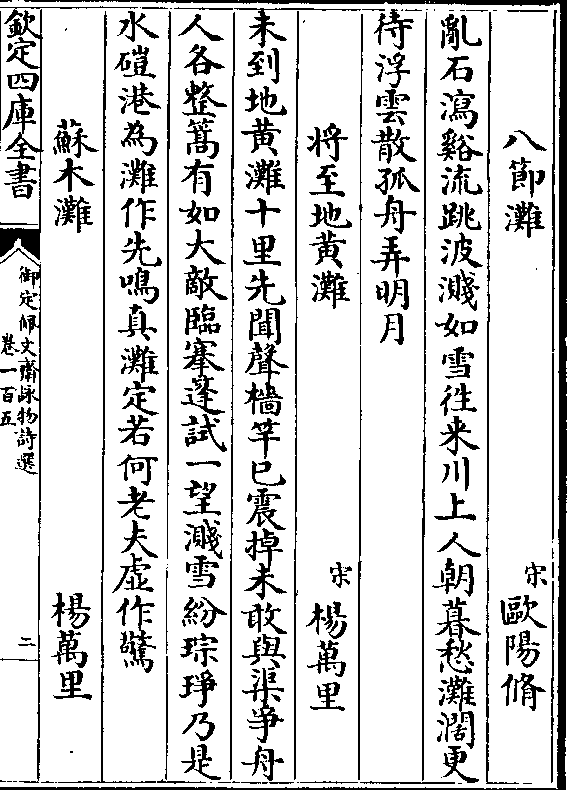 八節灘 宋 歐陽脩
亂石瀉谿流跳波濺如雪往来川上人朝暮愁灘濶更
待浮雲散孤舟弄明月
將至地黄灘 宋 楊萬里
未到地黄灘十里先聞聲檣竿已震掉未敢與渠爭舟
人各整篙有如大敵臨搴蓬試一望濺雪紛琮琤乃是
水磑港為灘作先鳴真灘定若何老夫虚作驚
蘇木灘 楊萬里
欽定四庫全書
御定佩文齋詠物詩選
卷一百五
二